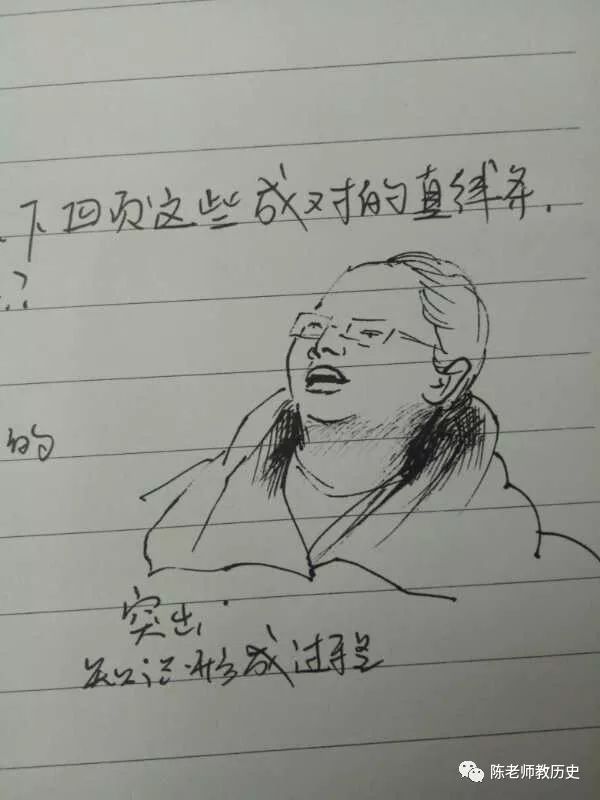 下四页这些成对的真律条.
.?
的
突出
知识形成过程
陈老师教历史